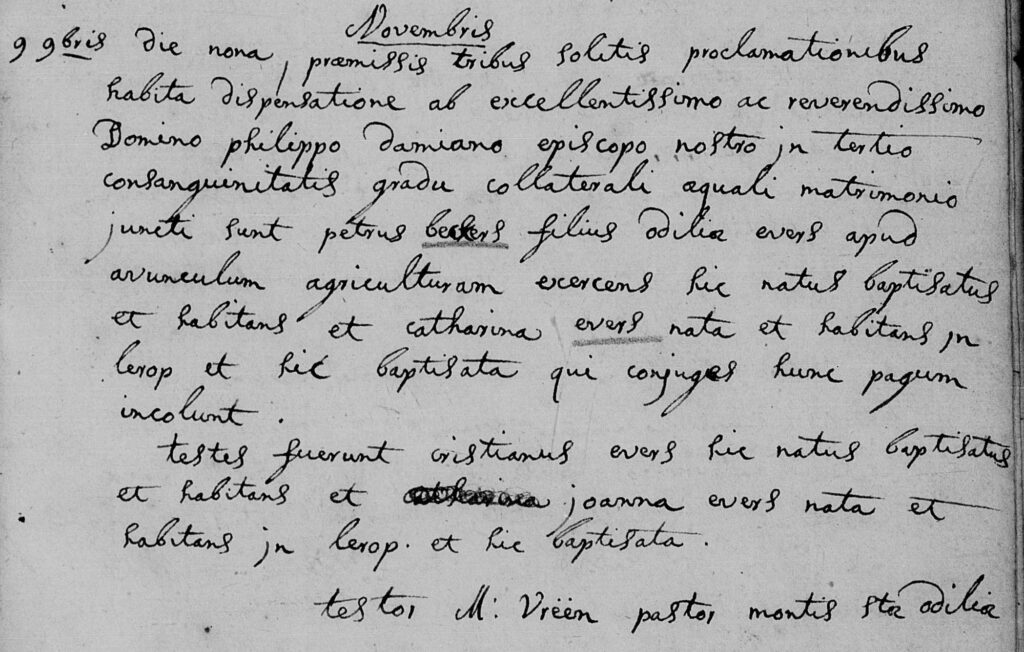 Novembris
9 9bris die nona, præmissis tribus solitis proclamationibus
habita dispensatione ab excellentissimo ac reverendissimo
Domino philippo damiano episcopo nostro jn tertio
consanguinitatis gradu collaterali æquali matrimonio
juncti sunt petrus beckers filius odiliæ evers apud
avunculum agriculturam excercens hic natus baptisatus
et habitans et catharina evers nata et habitans jn
lerop et hic baptisata qui conjuges hunc pagum
incolunt .
testes fuerunt cristianus evers hic natus baptisatus
et habitans et catharina joanna evers nata et
habitans jn lerop. et hic baptisata .
testor M: Vrëën pastor montis stæ odiliæ